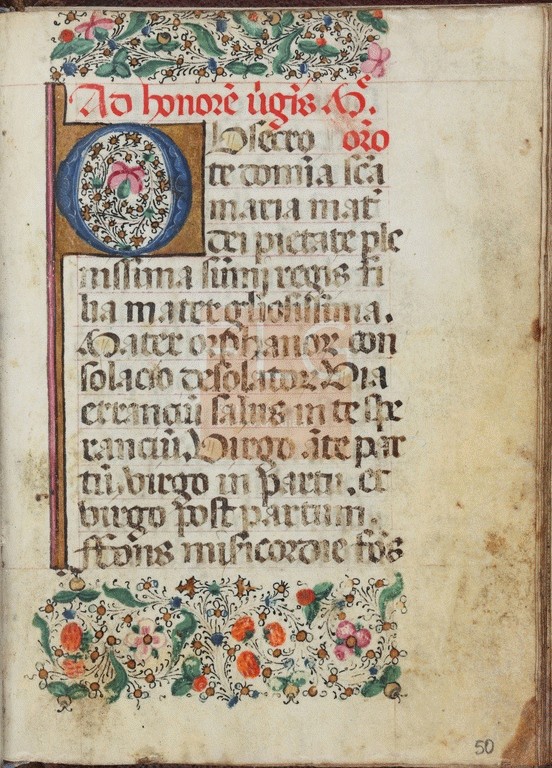 Ad honorē ūgīs M̄. oro
Obsecro
te domīa scā
maria mat̄
dei pietate ple
nissima sūmi regis fi
lia mater gliosissima.
Mater orphanoꝝ con
solacio desolatoꝝ Via
erranciū salus in te spe
ranciū. Virgo āte par
tū, virgo in partu, et
virgo post partum.
ffons misericordie fōs
50